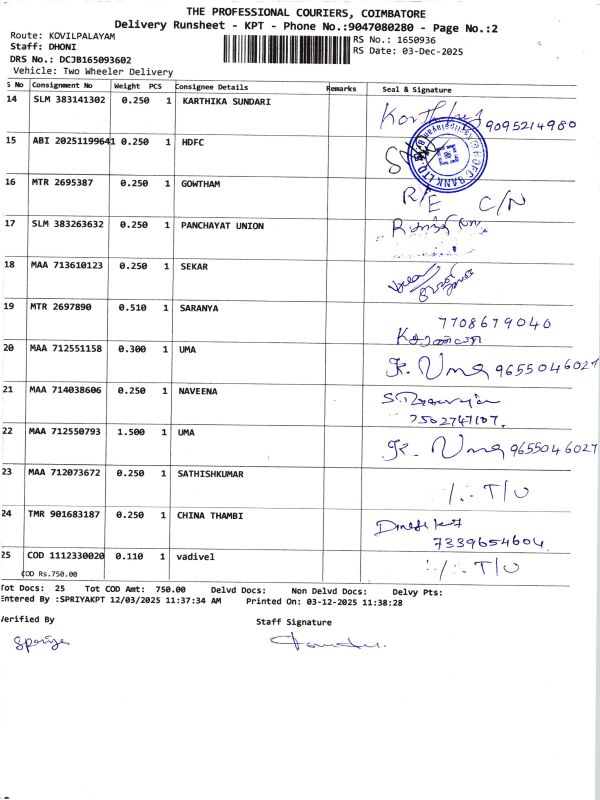 THE PROFESSIONAL COURIERS, COIMBATORE
Delivery Runsheet - KPT - Phone No.:9047080280 - Page No.:2
Route: KOVILPALAYAM
Staff: DHONI
DRS No.: DCJB165093602
Vehicle: Two Wheeler Delivery
RS No.: 1650936
RS Date: 03-Dec-2025
S No Consignment No Weight PCS Consignee Details Remarks Seal & Signature
14 SLM 383141302 0.250 1 KARTHIKA SUNDARI 9095214980
15 ABI 20251199641 0.250 1 HDFC HDFC BANK LTD
16 MTR 2695387 0.250 1 GOWTHAM R/E C/N
17 SLM 383263632 0.250 1 PANCHAYAT UNION
18 MAA 713610123 0.250 1 SEKAR
19 MTR 2697890 0.510 1 SARANYA 7708679040
20 MAA 712551158 0.300 1 UMA Uma 9655046027
21 MAA 714038606 0.250 1 NAVEENA 7502747107.
22 MAA 712550793 1.500 1 UMA Uma 9655046027
23 MAA 712073672 0.250 1 SATHISHKUMAR T/U
24 TMR 901683187 0.250 1 CHINA THAMBI 7339654604.
25 COD 1112330020 0.110 1 vadivel T/U
COD Rs.750.00
Tot Docs: 25 Tot COD Amt: 750.00 Delvd Docs: Non Delvd Docs: Delvy Pts:
Entered By :SPRIYAKPT 12/03/2025 11:37:34 AM Printed On: 03-12-2025 11:38:28
Verified By Staff Signature